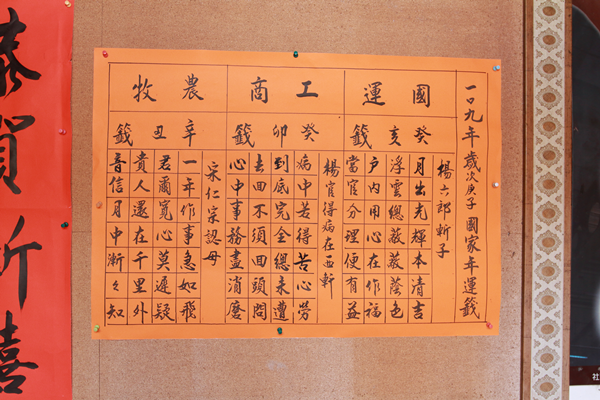 一〇九年歲次庚子 國家年運籤
國運
癸亥籤
楊六郎斬子
月出光輝本清吉
浮雲總蔽蔽蔭色
戶內用心在作福
當官分理便有益
工商
癸卯籤
楊官得病在西軒
病中若得苦心勞
到底完全總未遭
去回不須回頭問
心中事務盡消磨
農牧
辛丑籤
宋仁宗認母
一年作事急如飛
君爾寬心莫遲疑
貴人還在千里外
音信月中漸々知
恭賀新禧
社